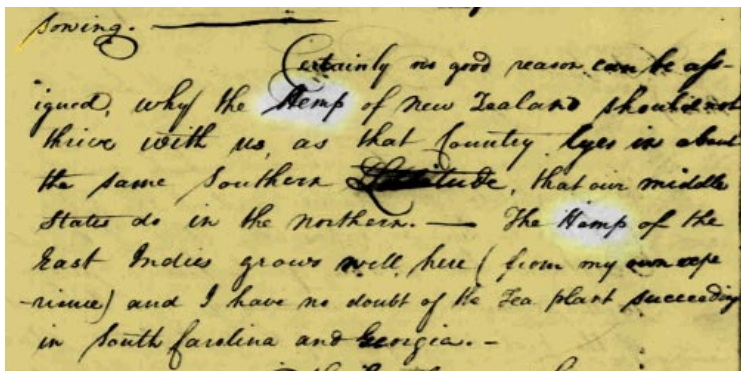 sowing. —
Certainly no good reason can be ass-
igned, why the Hemp of New Zealand should not
thrive with us, as that Country lyes in about
the same Southern Latitude, that our middle
States do in the northern. — The Hemp of the
East Indies grows well here (from my own expe
-rience) and I have no doubt of the Tea plant succeeding
in South Carolina and Georgia. —